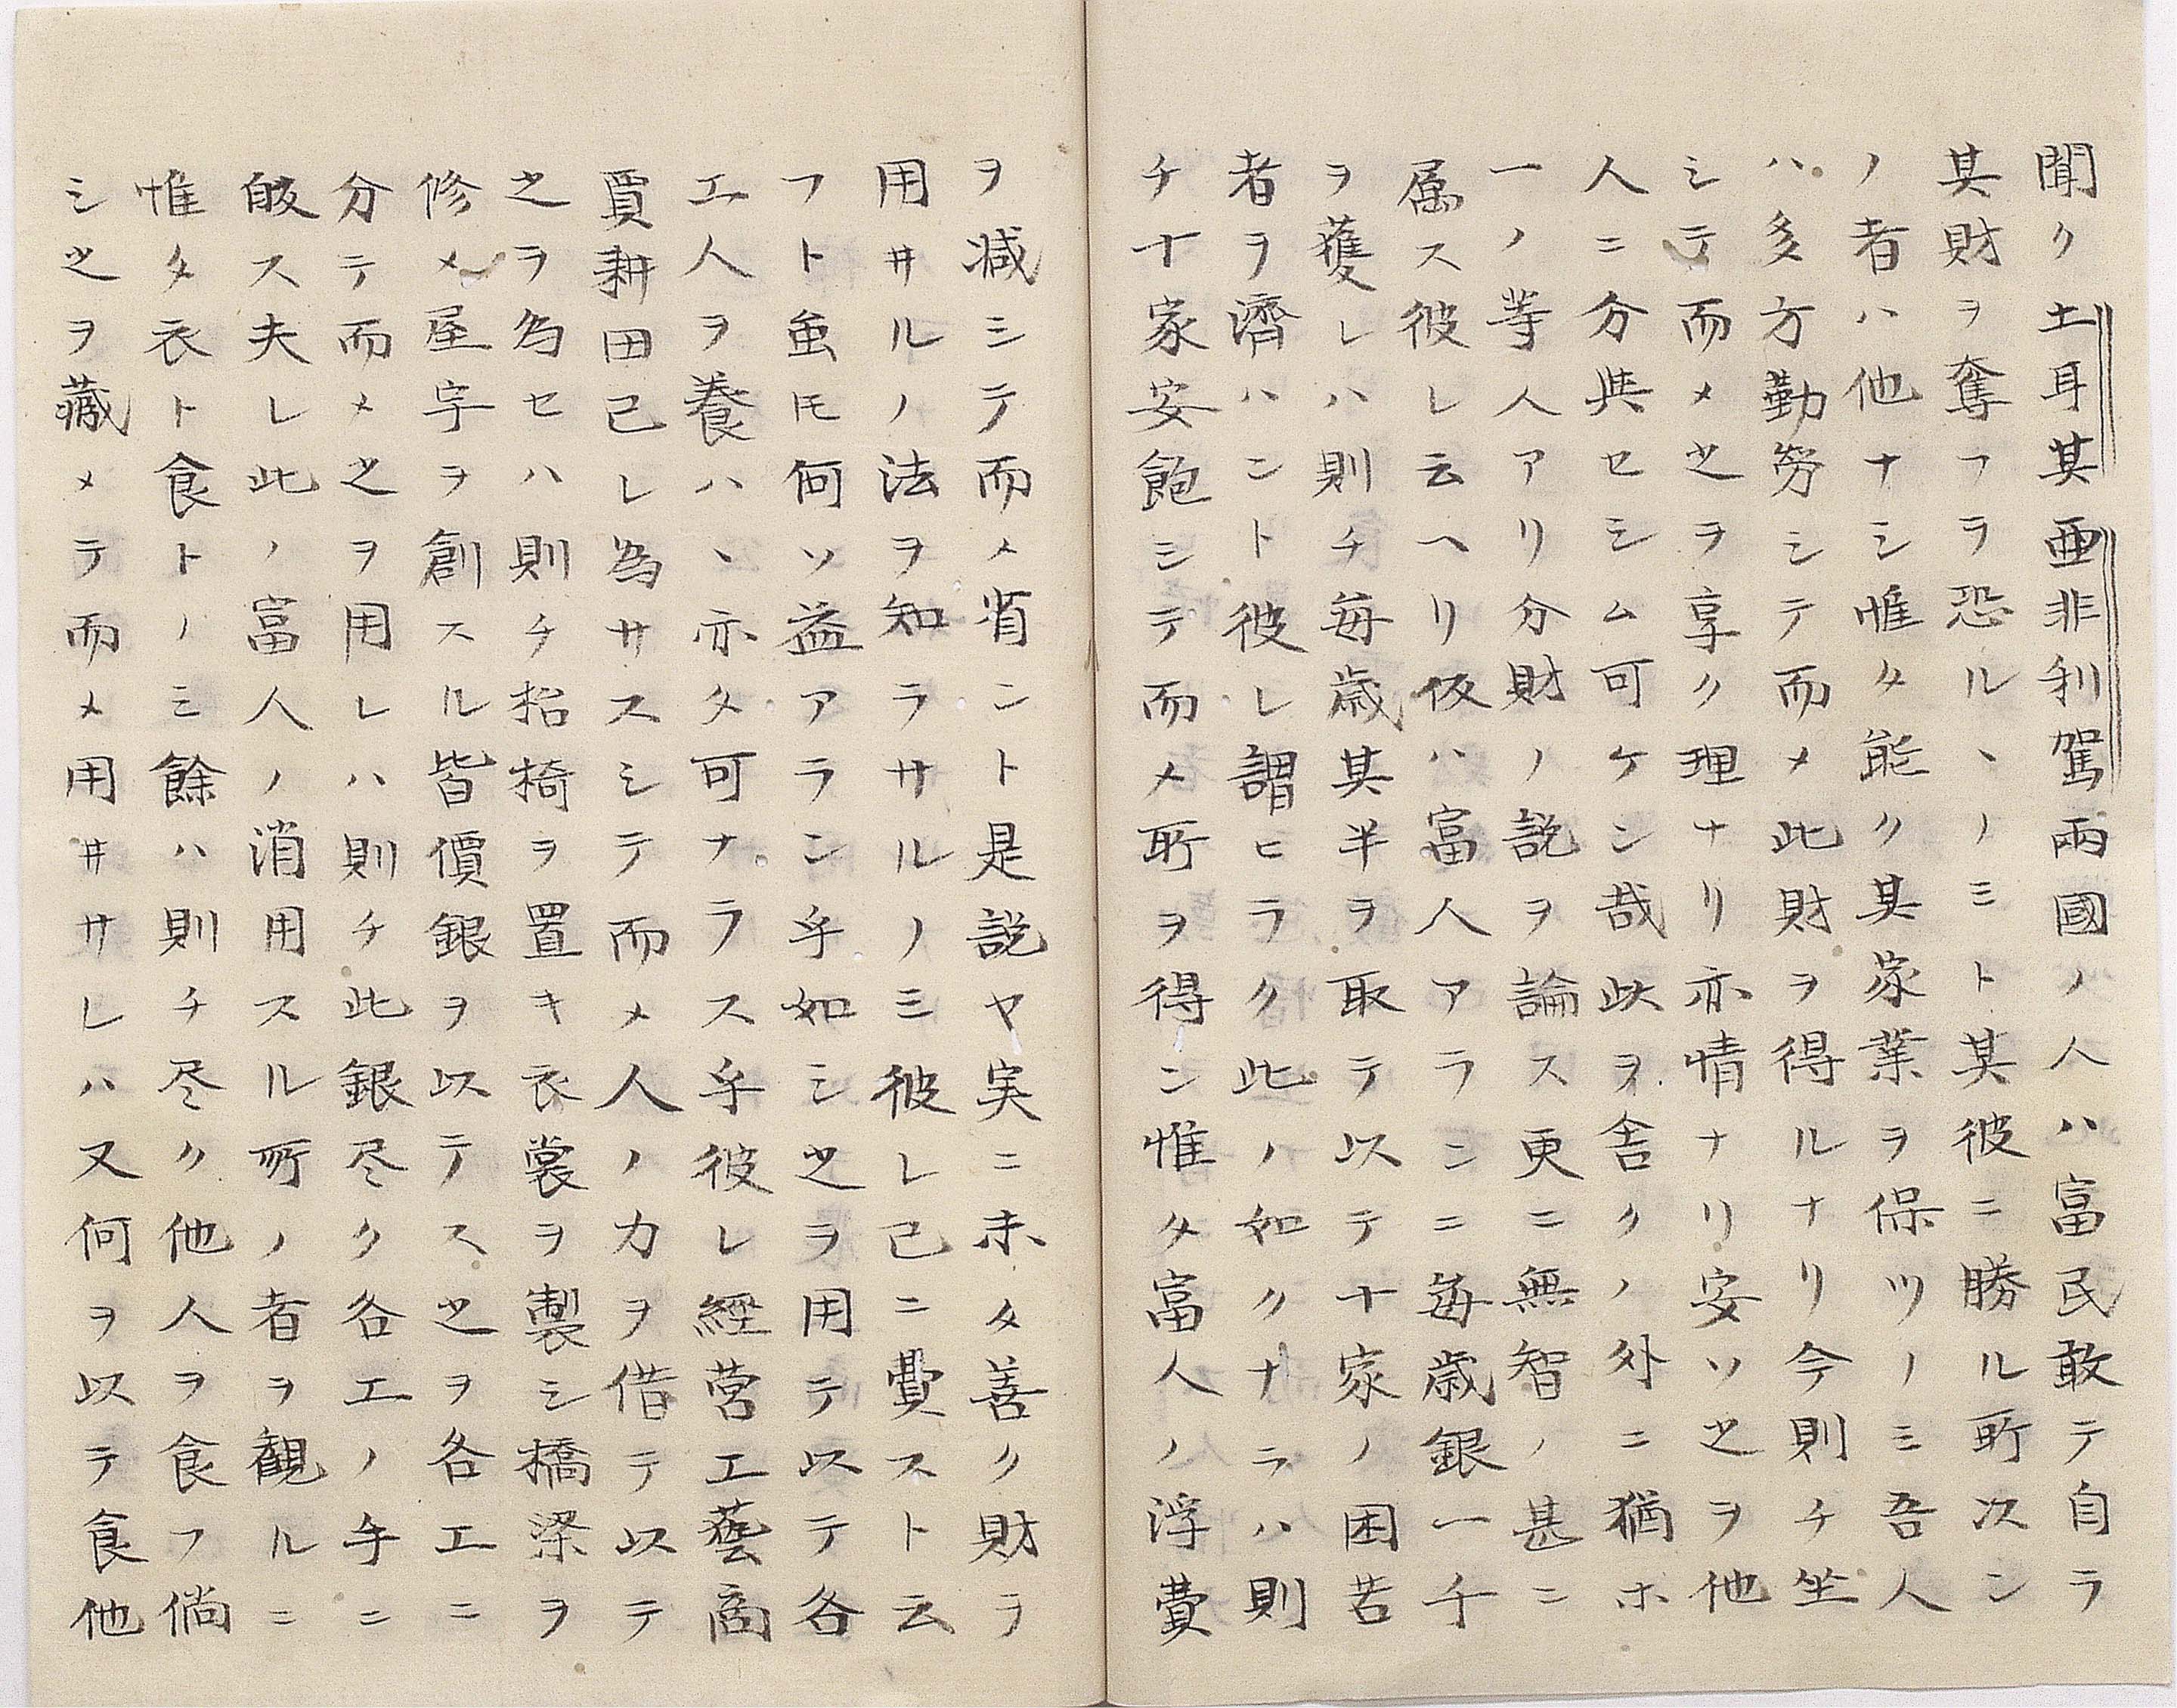 聞ク土耳其亜非利駕兩國ノ人ハ富民敢テ自ラ
其財ヲ奪フヲ恐ルヽノミト其彼ニ勝ル所次ン
ノ者ハ他ナシ惟タ能ク其家業ヲ保ツノミ吾人
ハ多方勤労シテ而メ此財ヲ得ルナリ今則チ坐
シテ而メ之ヲ享ク理ナリ亦情ナリ安ソ之ヲ他
人ニ分與セシム可ケン哉此ヲ舎クノ外ニ猶ホ
一ノ等人アリ分財ノ説ヲ論ス更ニ無智ノ甚ニ
属ス彼レ云ヘリ仮ハ富人アランニ毎歳銀一千
ヲ獲レハ則チ毎歳其半ヲ取テ以テ十家ノ困苦
者ヲ濟ハント彼レ謂ヒラク此ノ如クナラハ則
チ十家安飽シテ而メ所ヲ得ン惟タ富人ノ浮費
ヲ減シテ而メ省ント是説ヤ実ニ未タ善ク財ヲ
用井ルノ法ヲ知ラサルノミ彼レ己ニ費スト云
フト虽モ何ソ益アラン乎如シ之ヲ用テ以テ各
工人ヲ養ハヽ亦タ可ナラス乎彼レ經営工藝商
賈耕田己レ為サスシテ而メ人ノ力ヲ借テ以テ
之ヲ為セハ則チ抬椅ヲ置キ衣裳ヲ製シ橋梁ヲ
修メ屋宇ヲ創スル皆價銀ヲ以テス之ヲ各工ニ
分テ而メ之ヲ用レハ則チ此銀尽ク各工ノ手ニ
皈ス夫レ此ノ富人ノ消用スル所ノ者ヲ観ルニ
惟タ衣ト食トノミ餘ハ則チ尽ク他人ヲ食フ倘
シ之ヲ藏メテ而メ用井サレハ又何ヲ以テ食他